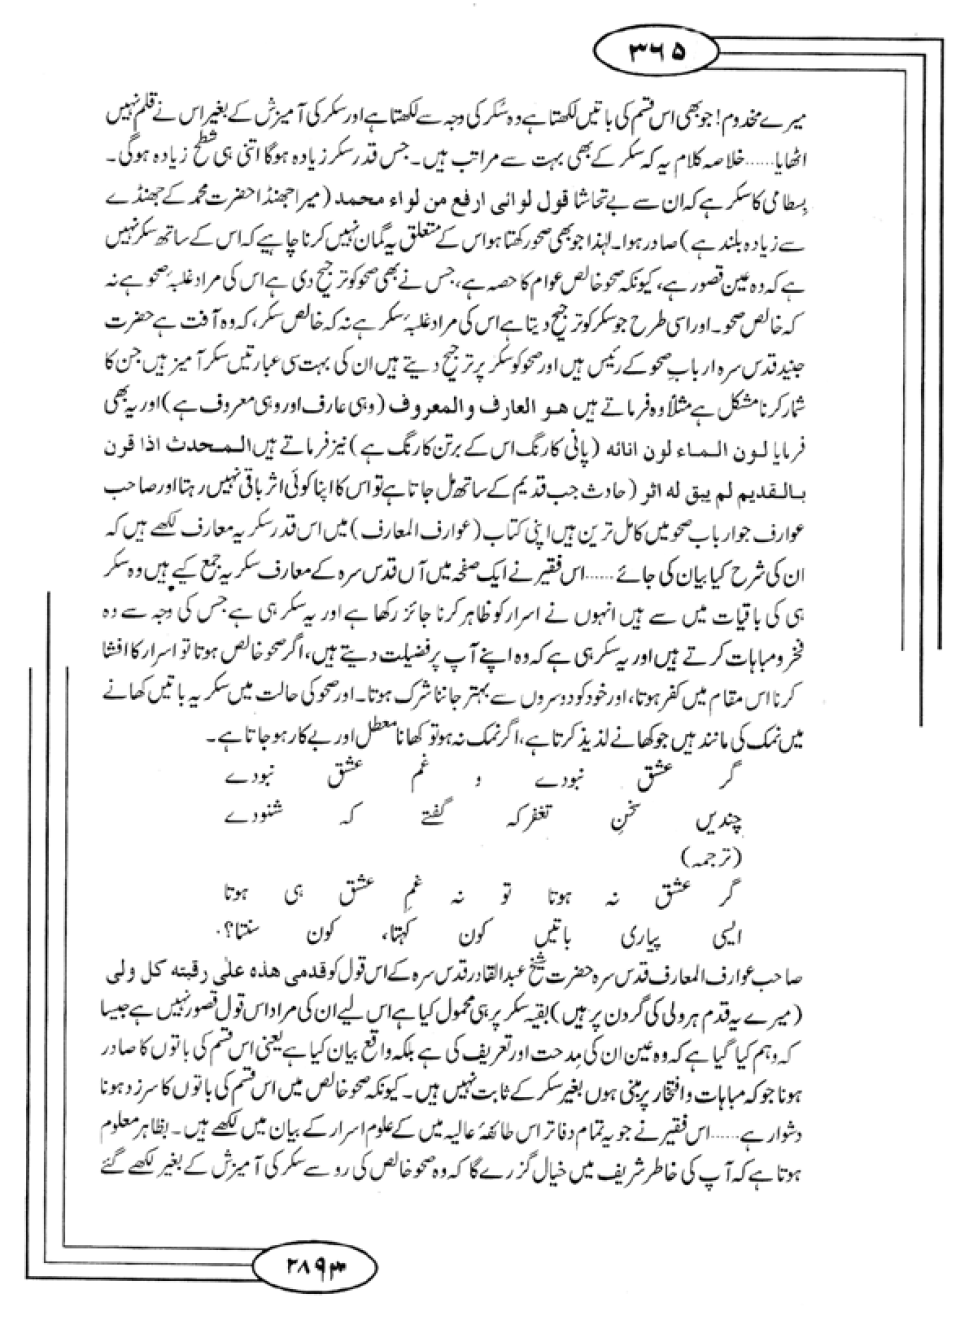 ۳۶۵
میرے مخدوم! جو بھی اس قسم کی باتیں لکھتا ہے وہ سُکر کی وجہ سے لکھتا ہے اور سکر کی آمیزش کے بغیر اس نے قلم نہیں
اٹھایا......خلاصہ کلام یہ کہ سکر کے بھی بہت سے مراتب ہیں۔ جس قدر سکر زیادہ ہوگا اتنی ہی شطح زیادہ ہوگی۔
بسطامی کا سکر ہے کہ ان سے بے تحاشا قول لوائی ارفع من لواء محمد (میرا جھنڈا حضرت محمد کے جھنڈے
سے زیادہ بلند ہے) صادر ہوا۔ لہٰذا جو بھی صحو رکھتا ہو اس کے متعلق یہ گمان نہیں کرنا چاہیے کہ اس کے ساتھ سکر نہیں
ہے کہ وہ عین قصور ہے، کیونکہ صحو خالص عوام کا حصہ ہے، جس نے بھی صحو کو ترجیح دی ہے اس کی مراد غلبۂ صحو ہے نہ
کہ خالص صحو۔ اور اسی طرح جو سکر کو ترجیح دیتا ہے اس کی مراد غلبۂ سکر ہے نہ کہ خالص سکر، کہ وہ آفت ہے حضرت
جنید قدس سرہ ارباب صحو کے رئیس ہیں اور صحو کو سکر پر ترجیح دیتے ہیں ان کی بہت سی عبارتیں سکر آمیز ہیں جن کا
شمار کرنا مشکل ہے مثلاً وہ فرماتے ہیں هو العارف والمعروف (وہی عارف اور وہی معروف ہے) اور یہ بھی
فرمایا لون الماء لون انائه (پانی کا رنگ اس کے برتن کا رنگ ہے) نیز فرماتے ہیں المحدث اذا قورن
بالقديم لم يبق له اثر (حادث جب قدیم کے ساتھ مل جاتا ہے تو اس کا اپنا کوئی اثر باقی نہیں رہتا اور صاحب
عوارف جو ارباب صحو میں کامل ترین ہیں اپنی کتاب (عوارف المعارف) میں اس قدر سکریہ معارف لکھے ہیں کہ
ان کی شرح کیا بیان کی جائے......اس فقیر نے ایک صفحہ میں آں قدس سرہ کے معارف سکریہ جمع کیے ہیں وہ سکر
ہی کی باقیات میں سے ہیں انہوں نے اسرار کو ظاہر کرنا جائز رکھا ہے اور یہ سکر ہی ہے جس کی وجہ سے وہ
فخر و مباہات کرتے ہیں اور یہ سکر ہی ہے کہ وہ اپنے آپ پر فضیلت دیتے ہیں، اگر صحو خالص ہوتا تو اسرار کا افشا
کرنا اس مقام میں کفر ہوتا، اور خود کو دوسروں سے بہتر جاننا شرک ہوتا۔ اور صحو کی حالت میں سکریہ باتیں کھانے
میں نمک کی مانند ہیں جو کھانے لذیذ کرتا ہے، اگر نمک نہ ہو تو کھانا معطل اور بے کار ہو جاتا ہے۔
گر عشق نبودے و غم عشق نبودے
چندیں سخن نغز کہ گفتے کہ شنودے
(ترجمہ)
گر عشق نہ ہوتا تو نہ غمِ عشق ہی ہوتا
ایسی پیاری باتیں کون کہتا، کون سنتا؟
صاحب عوارف المعارف قدس سرہ حضرت شیخ عبدالقادر قدس سرہ کے اس قول کو قدمی هذه علی رقبته کل ولی
(میرے یہ قدم ہر ولی کی گردن پر ہیں) بقیہ سکر پر ہی محمول کیا ہے اس لیے ان کی مراد اس قول قصور نہیں ہے جیسا
کہ وہم کیا گیا ہے کہ وہ عین ان کی مدحت اور تعریف کی ہے بلکہ واقع بیان کیا ہے یعنی اس قسم کی باتوں کا صادر
ہونا جو کہ مباہات و افتخار پر مبنی ہوں بغیر سکر کے ثابت نہیں ہیں۔ کیونکہ صحو خالص میں اس قسم کی باتوں کا سرزد ہونا
دشوار ہے......اس فقیر نے جو یہ تمام دفاتر اس طائفۂ عالیہ میں کے علوم اسرار کے بیان میں لکھے ہیں۔ بظاہر معلوم
ہوتا ہے کہ آپ کی خاطر شریف میں خیال گزرے گا کہ وہ صحو خالص کی رو سے سکر کی آمیزش کے بغیر لکھے گئے
۲۸۹۳